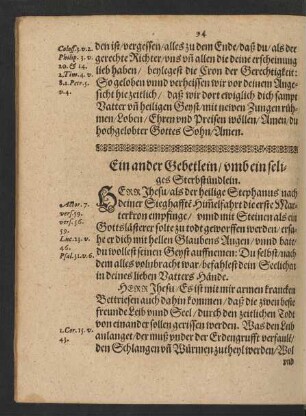 94
Coloss. 3. v. 2.
Philip. 3. v.
20. & 14.
2. Tim. 4. v.
8. 1. Petr. 5.
v. 4.
den ist/ vergessen/ alles zu dem Ende/ daß du/ als der
gerechte Richter/ vns vñ allen die deine erscheinung
lieb haben/ beylegest die Cron der Gerechtigkeit:
So geloben vnd verheissen wir vor deinem Ange-
sicht hie zeitlich/ daß wir dort ewiglich dich sampt
Vatter vñ heiligen Geyst/ mit newen Zungen rüh-
men/ Loben/ Ehren vnd Preisen wöllen/ Amen/ du
hochgelobter Gottes Sohn/ Amen.
Ein ander Gebetlein/ vmb ein seli-
ges Sterbstündlein.
v. Actor. 7.
vers. 59.
vers. 56.
59.
Luc. 23. v.
46.
Psal. 31. v. 6.
HERR Jhesu/ als der heilige Stephanus nach
deiner Sieghaffte Himelfahrt die erste Mar-
terkron empfinge/ vnnd mit Steinen als ein
Gottslästerer solte zu todt geworffen werden/ ersa-
he er dich mit hellen Glaubens Augen/ vnnd bat/
du wollest seinen Geyst auffnemen: Du selbst/ nach
dem alles volnbracht war/ befahlest dein Seelichen
in deines lieben Vatters Hände.
HERR Jhesu/ Es ist mit mir armen krancken
Bettriesen auch dahin kommen/ daß die zwen beste
freunde Leib vnnd Seel/ durch den zeitlichen Todt
von einander sollen gerissen werden. Was den Leib
1. Cor. 15. v.
43.
anlanget/ der muß vnder der Erdengrufft verfaul/
den Schlangen vñ Würmen zu theyl werden/ Wol
vnd